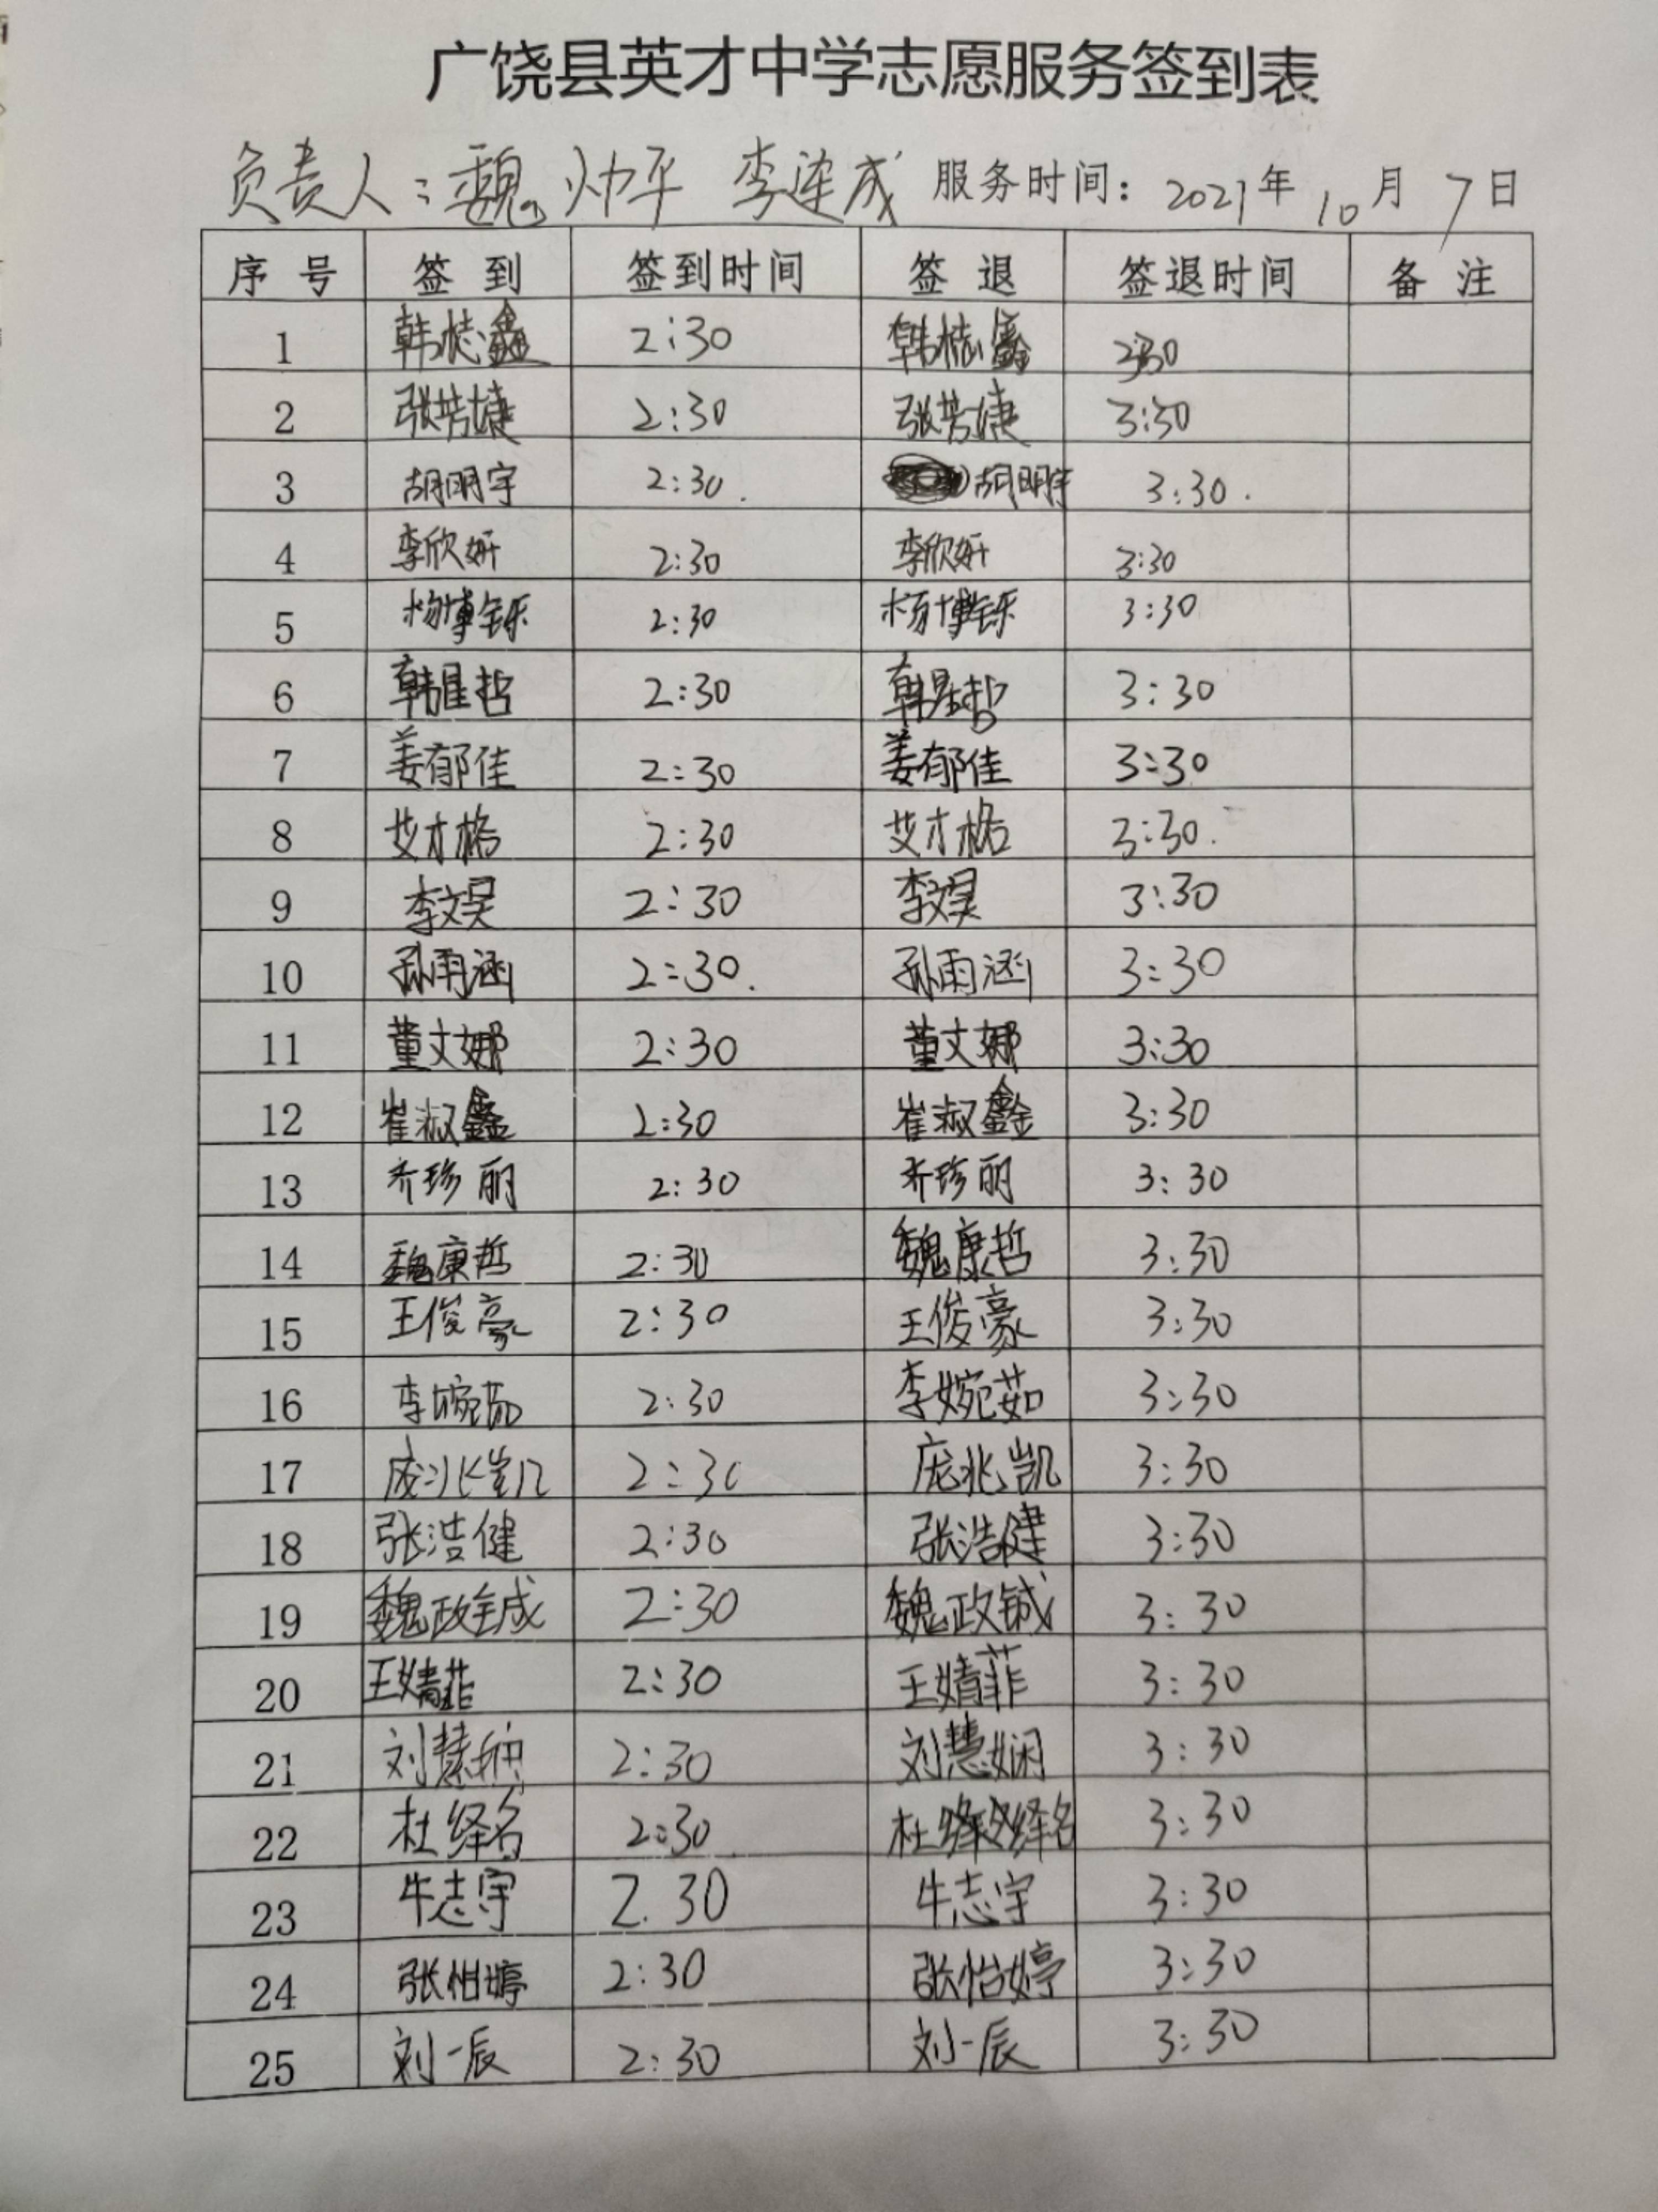 广饶县英才中学志愿服务签到表
负责人：魏帅平 李连成 服务时间：2021年10月7日
序号 签到 签到时间 签退 签退时间 备注
1 韩梽鑫 2:30 韩梽鑫 3:30
2 张芳婕 2:30 张芳婕 3:30
3 胡明宇 2:30. 胡明宇 3:30.
4 李欣妍 2:30 李欣妍 3:30
5 杨博铄 2:30 杨博铄 3:30
6 韩星哲 2:30 韩星哲 3:30
7 姜郁佳 2:30 姜郁佳 3:30
8 艾才格 2:30 艾才格 3:30.
9 李文昊 2:30 李文昊 3:30
10 孙雨涵 2:30. 孙雨涵 3:30
11 董文娜 2:30 董文娜 3:30
12 崔淑鑫 2:30 崔淑鑫 3:30
13 齐珍丽 2:30 齐珍丽 3:30
14 魏康哲 2:30 魏康哲 3:30
15 王俊豪 2:30 王俊豪 3:30
16 李婉茹 2:30 李婉茹 3:30
17 庞兆凯 2:30 庞兆凯 3:30
18 张浩健 2:30 张浩健 3:30
19 魏政铖 2:30 魏政铖 3:30
20 王婧菲 2:30 王婧菲 3:30
21 刘慧娴 2:30 刘慧娴 3:30
22 杜绎名 2:30 杜绎名 3:30
23 牛志宇 2.30 牛志宇 3:30
24 张怡婷 2:30 张怡婷 3:30
25 刘一辰 2:30 刘一辰 3:30